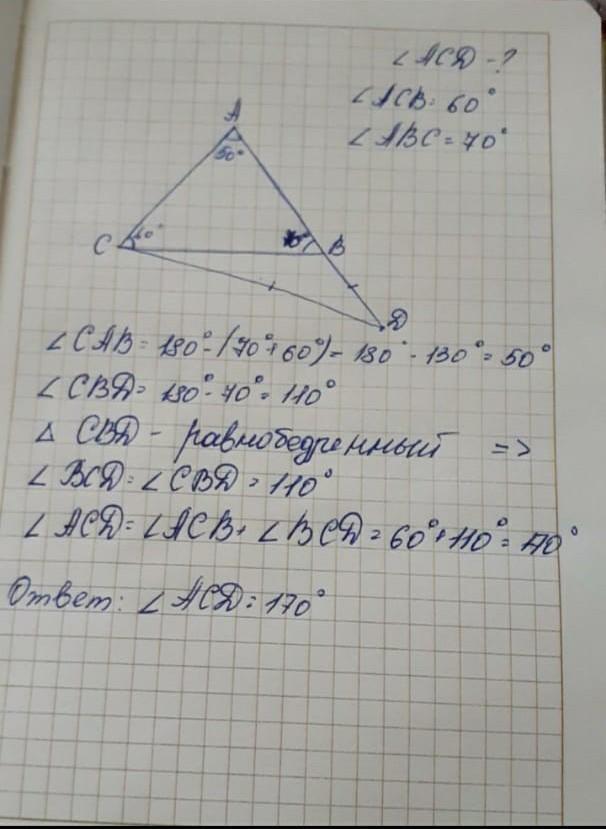 ∠ACD - ?
∠ACB = 60°
∠ABC = 70°
A
50°
C 60° B
D
∠CAB = 180° - (70° + 60°) = 180° - 130° = 50°
∠CBD = 180° - 70° = 110°
△ CBD - равнобедренный =>
∠BCD = ∠CBD = 110°
∠ACD = ∠ACB + ∠BCD = 60° + 110° = 170°
Ответ: ∠ACD = 170°